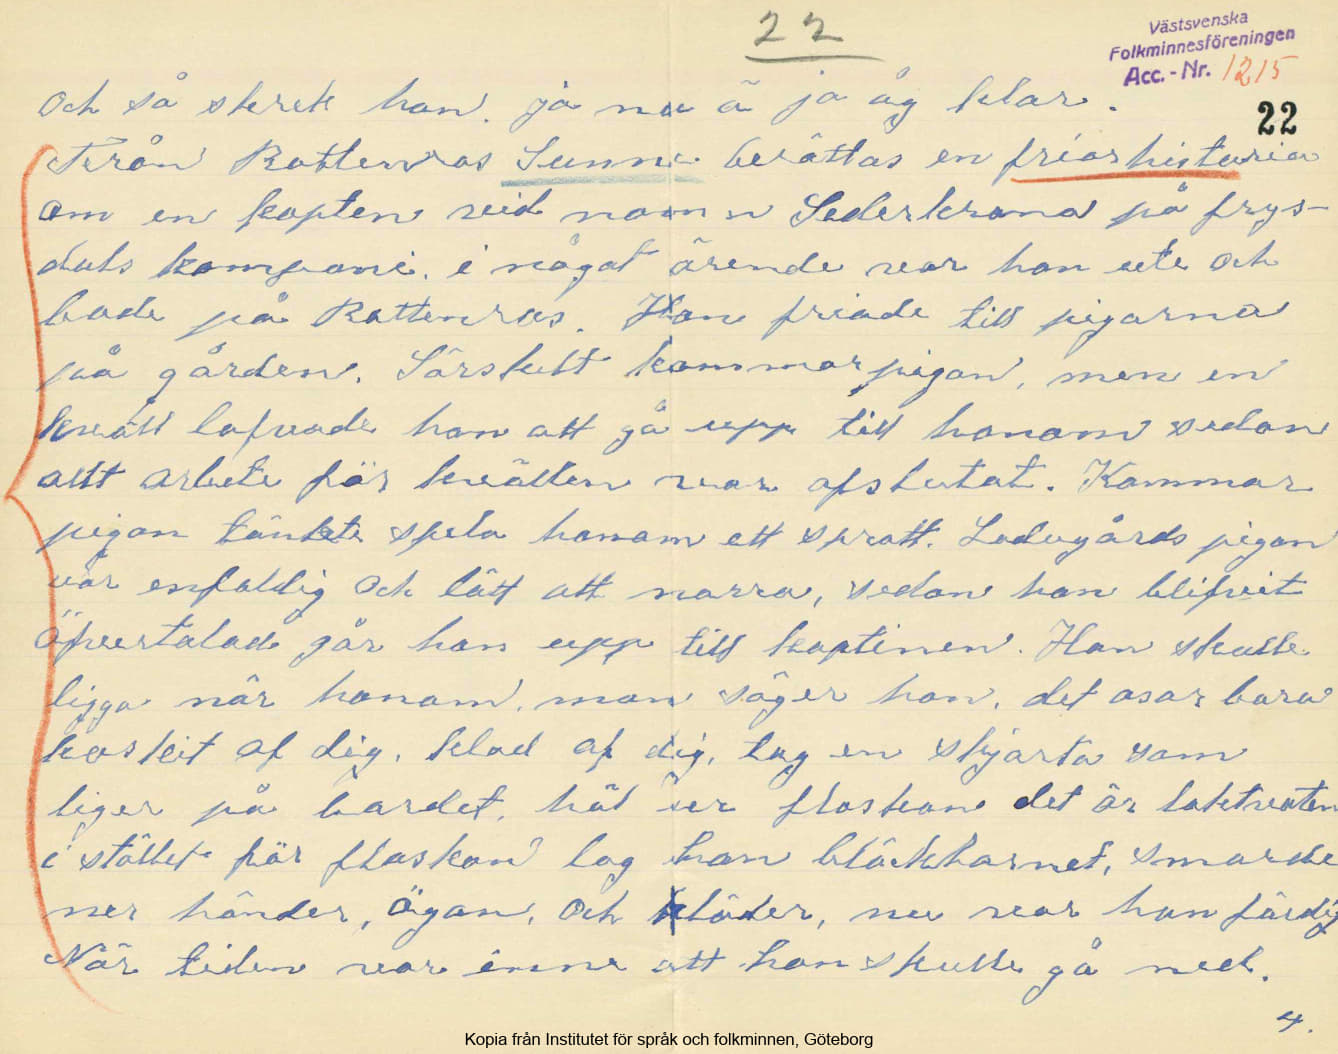 22
Västsvenska
Folkminnesföreningen
Acc. - Nr. 1215
22
och så skrek han. ja nu ä ja åg klar.
Från Rottenros Sunne berättas en friarhistoria
om en kapten vid namn Sederkrona på frys-
dals kompani. i något ärende var han ute och
bode på Rottenros. Han friade till pigorna
på gården. Särskilt kammarpigan, men en
kväll lafvade han att gå upp till honom sedan
allt arbete för kvällen var afslutat. Kammar
pigan tänkte spela honom ett spratt. Ladugårds pigan
var enfaldig och lätt att narra, sedan han blifvit
öfvertalad går han upp till kaptinen. Han skulle
ligga när honom, man säger han, det osar bara
koskit af dig, klad af dig, tag en skjorta som
liger på bordet, häl er flaskan det är luktvaten
i stället för flaskan tog han bläckhornet, smorde
ner händer, ögan, och kläder, nu var han färdig
När tiden var inne att han skulle gå ned.
4.
Kopia från Institutet för språk och folkminnen, Göteborg